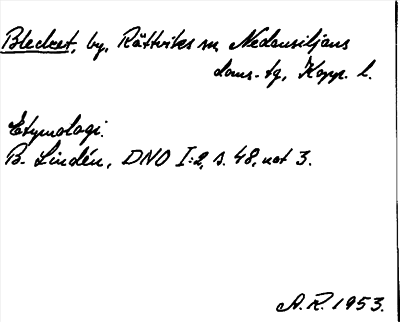 Blecket, by, Rättviks sn Nedansiljans
doms. tg, Kopp. l.
Etymologi.
B. Lindén, DNO I:2, s. 48, not 3.
A. R. 1953.